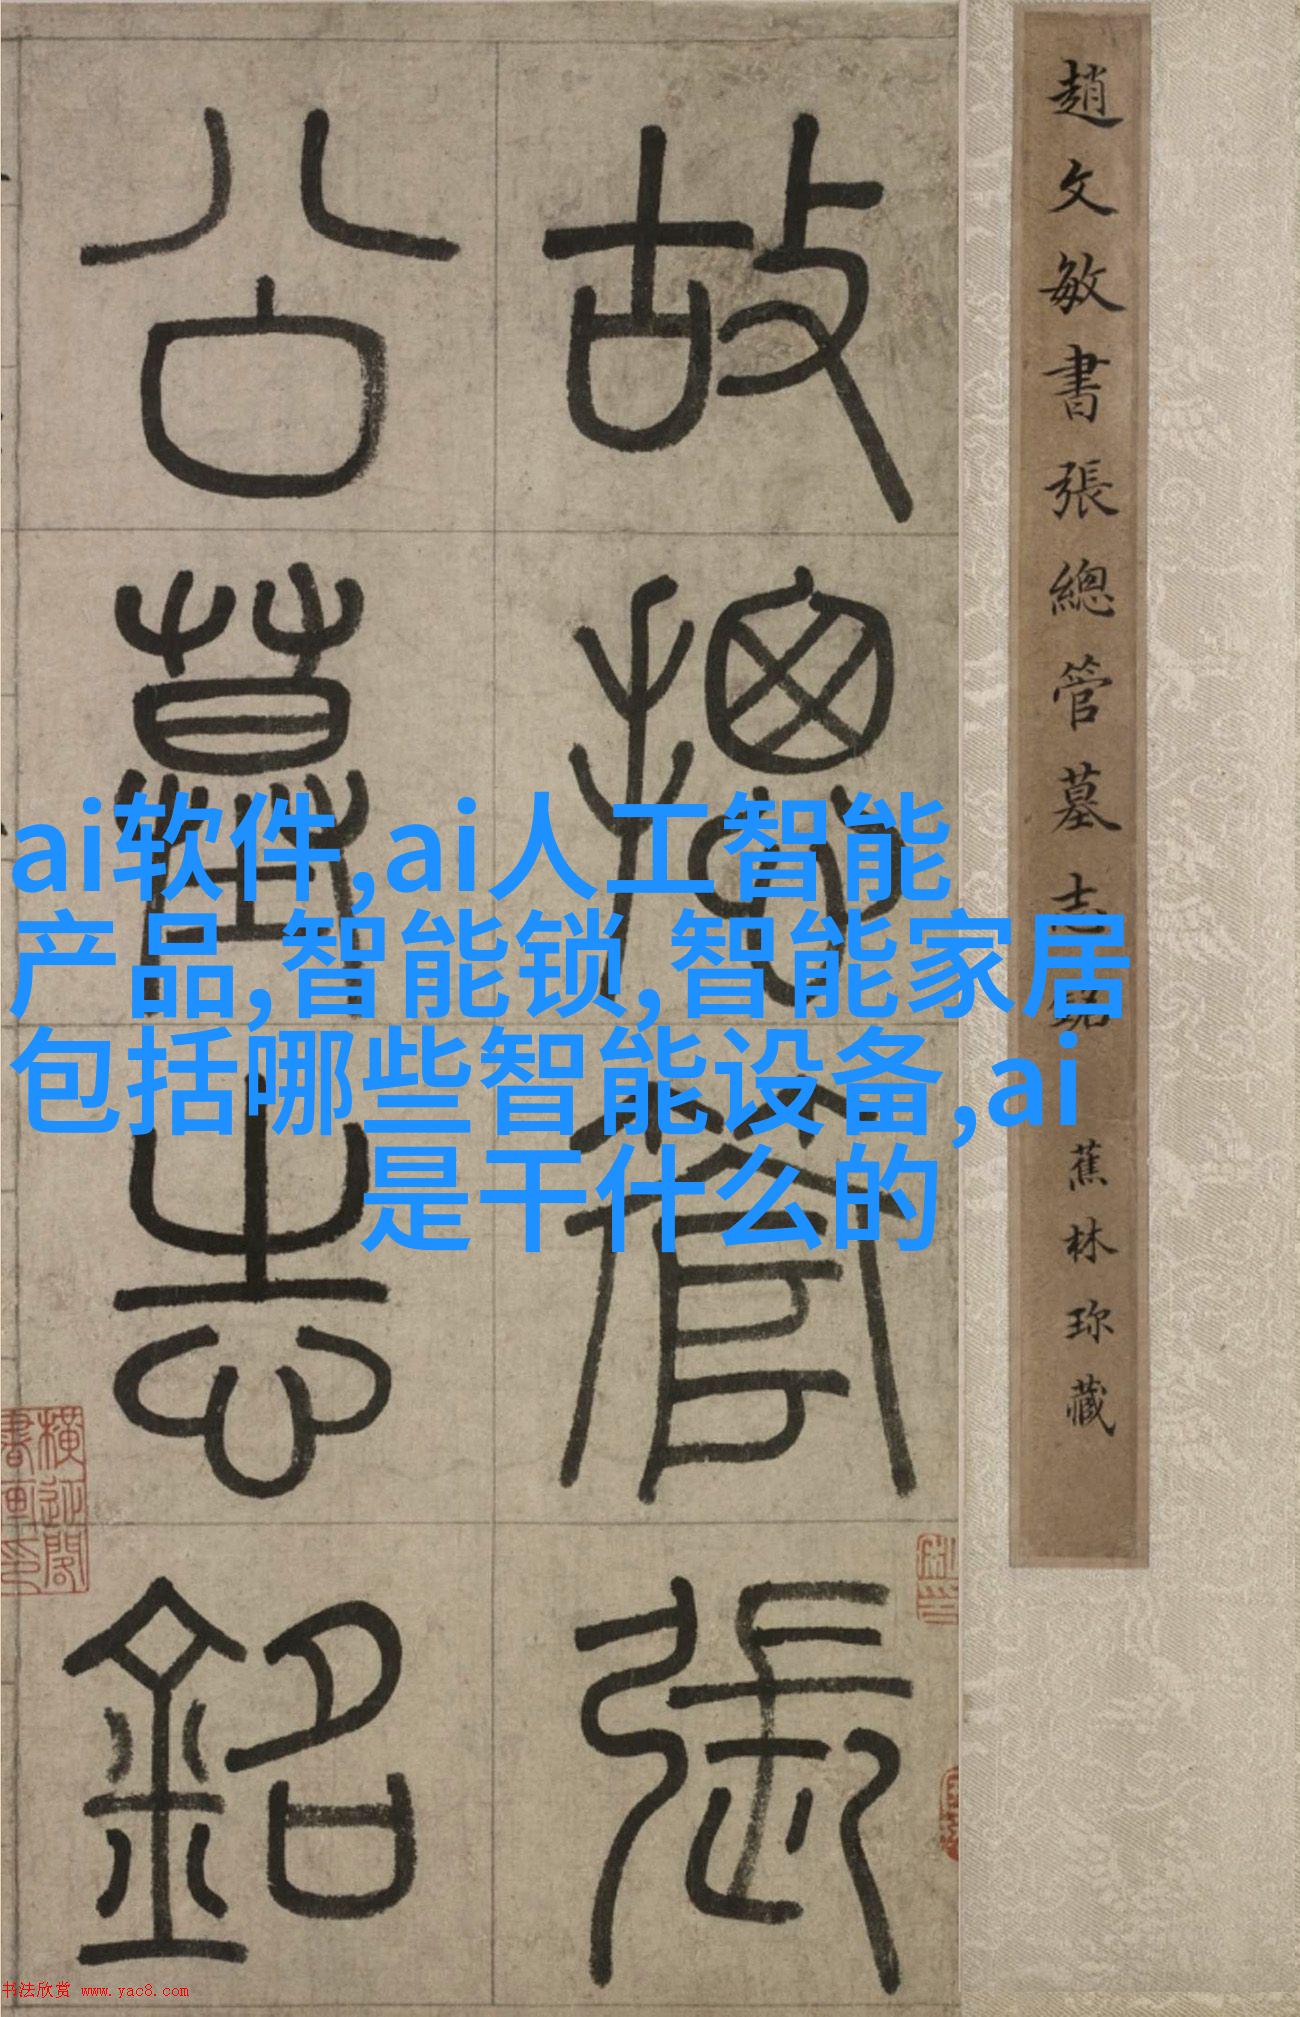 趙文敏書張總管墓志銘
蕉林珍藏
故總管張
公墓志銘
ai软件,ai人工智能
产品,智能锁,智能家居
包括哪些智能设备,ai
是干什么的
书法欣赏 www.yac8.com